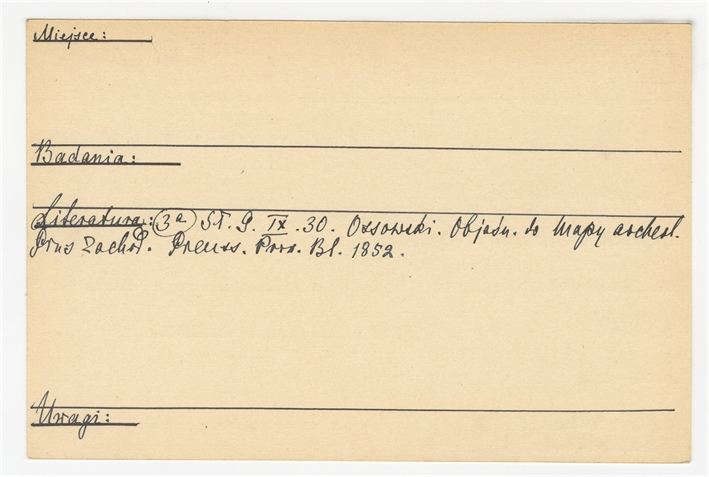 Miejsce:
Badania:
Literatura: (3a) St. G. IX. 30. Ossowski. Objaśn. do Mapy archeol.
Prus Zachod. Preuss. Prov. Bl. 1852.
Uwagi: